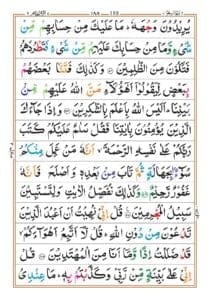 يُرِيْدُوْنَ وَجْهَهٗ ؕ مَا عَلَيْكَ مِنْ حِسَابِهِمْ مِّنْ
شَىْءٍ وَّمَا مِنْ حِسَابِكَ عَلَيْهِمْ مِّنْ شَىْءٍ فَتَطْرُدَهُمْ
فَتَكُوْنَ مِنَ الظّٰلِمِيْنَ ۝ وَكَذٰلِكَ فَتَنَّا بَعْضَهُمْ
بِبَعْضٍ لِّيَقُوْلُوْۤا اَهٰۤؤُلَآءِ مَنَّ اللّٰهُ عَلَيْهِمْ مِّنْۢ
بَيْنِنَا ؕ اَلَيْسَ اللّٰهُ بِاَعْلَمَ بِالشّٰكِرِيْنَ ۝ وَاِذَا جَآءَكَ
الَّذِيْنَ يُؤْمِنُوْنَ بِاٰيٰتِنَا فَقُلْ سَلٰمٌ عَلَيْكُمْ كَتَبَ
رَبُّكُمْ عَلٰى نَفْسِهِ الرَّحْمَةَ ۙ اَنَّهٗ مَنْ عَمِلَ مِنْكُمْ
سُوْٓءًۢا بِجَهَالَةٍ ثُمَّ تَابَ مِنْۢ بَعْدِهٖ وَاَصْلَحَ فَاَنَّهٗ
غَفُوْرٌ رَّحِيْمٌ ۝ وَكَذٰلِكَ نُفَصِّلُ الْاٰيٰتِ وَلِتَسْتَبِيْنَ
سَبِيْلُ الْمُجْرِمِيْنَ ۝ قُلْ اِنِّىْ نُهِيْتُ اَنْ اَعْبُدَ الَّذِيْنَ
تَدْعُوْنَ مِنْ دُوْنِ اللّٰهِ ؕ قُلْ لَّاۤ اَتَّبِعُ اَهْوَآءَكُمْ ۙ
قَدْ ضَلَلْتُ اِذًا وَّمَاۤ اَنَا مِنَ الْمُهْتَدِيْنَ ۝ قُلْ
اِنِّىْ عَلٰى بَيِّنَةٍ مِّنْ رَّبِّىْ وَكَذَّبْتُمْ بِهٖ ؕ مَا عِنْدِىْ